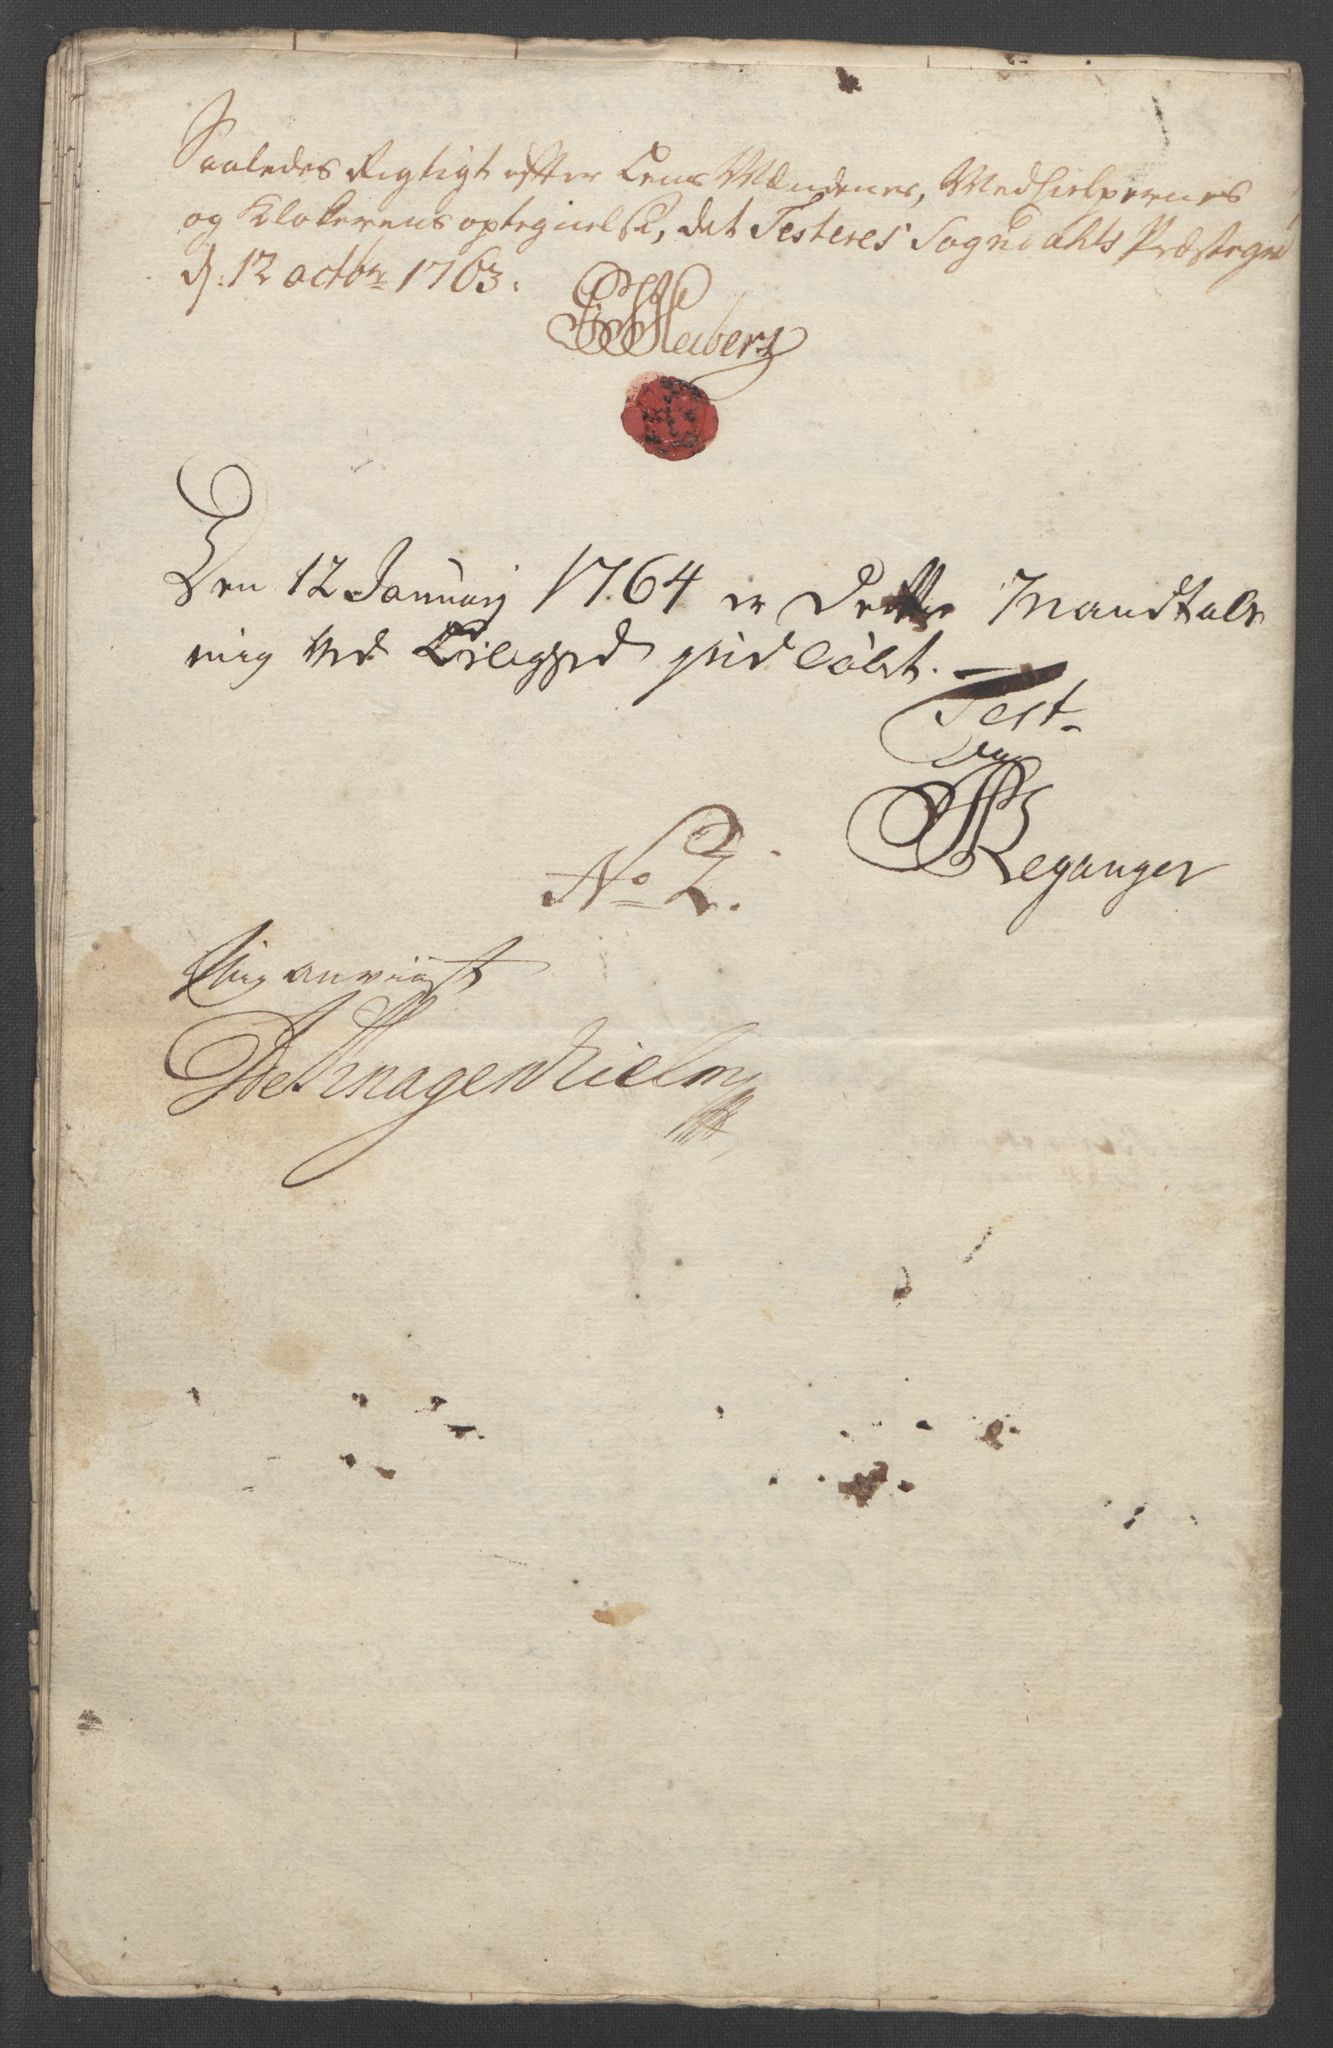 Saaledes Rigtigt efter Lens Mændenes, Medhielpernes
og Klokerens optegnelse, det Testeres Sogndahls Præstegield
d. 12 octobr 1763.
Heiberg
Den 12 Januarj 1764 er Dette Mandtal
mig ved
Test
Leganger
No 2.
Mig anviist
Knagenhielm